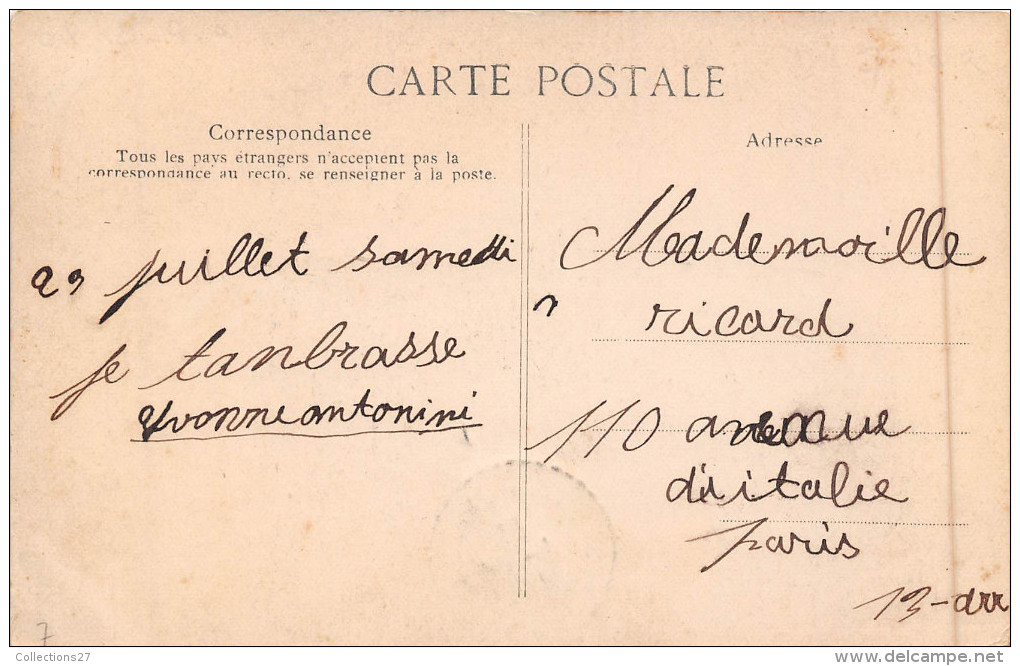 CARTE POSTALE
Correspondance
Tous les pays étrangers n'acceptent pas la
correspondance au recto, se renseigner à la poste.
Adresse
23 juillet samedi
je tanbrasse
yvonne antonini
Mademoille
ricard
110 avenue
ditalie
paris
13-arr
7
Collections27
www.delcampe.net